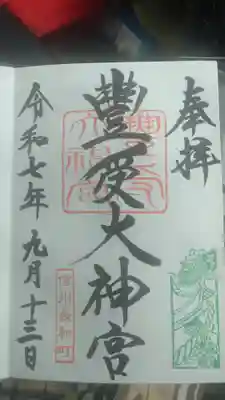 奉拝
豊受大神宮
令和七年九月十三日